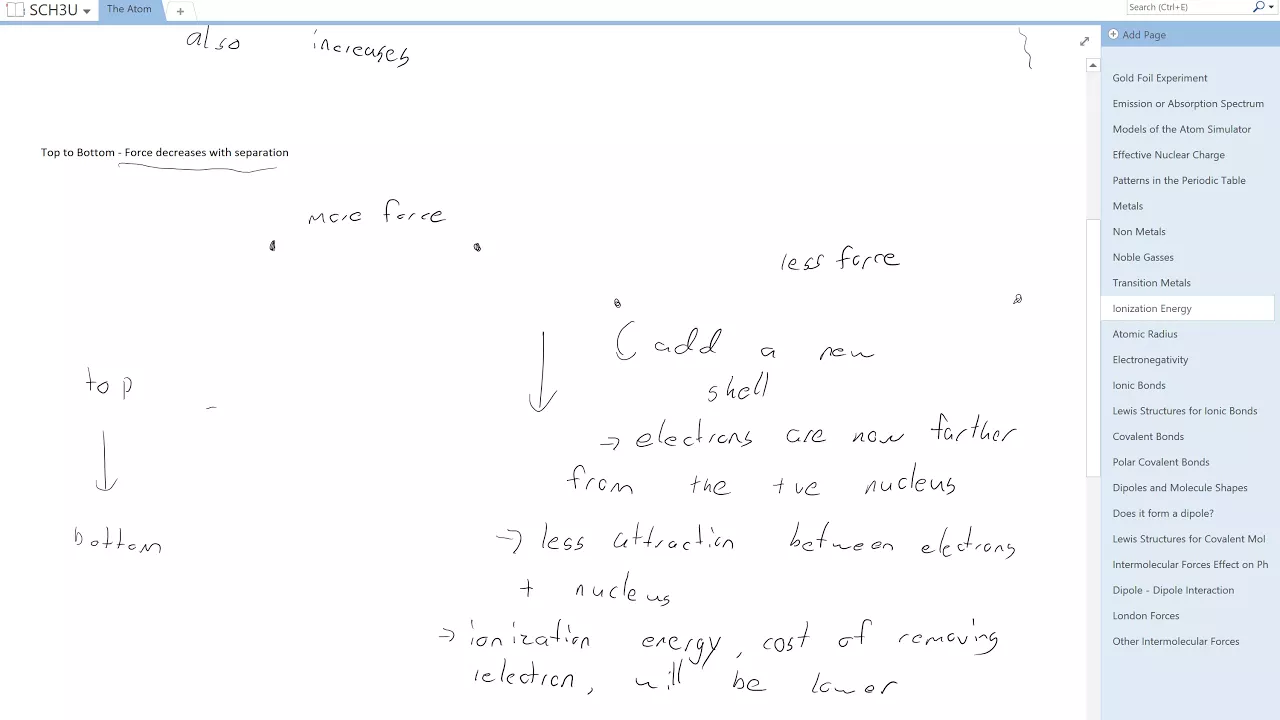 SCH3U
The Atom
Search (Ctrl+E)
also increases
Top to Bottom - Force decreases with separation
more force
less force
(add a new
shell
top
→ electrons are now farther
from the +ve nucleus
bottom
→ less attraction between electrons
+ nucleus
→ ionization energy, cost of removing
1electron, will be lower
Add Page
Gold Foil Experiment
Emission or Absorption Spectrum
Models of the Atom Simulator
Effective Nuclear Charge
Patterns in the Periodic Table
Metals
Non Metals
Noble Gasses
Transition Metals
Ionization Energy
Atomic Radius
Electronegativity
Ionic Bonds
Lewis Structures for Ionic Bonds
Covalent Bonds
Polar Covalent Bonds
Dipoles and Molecule Shapes
Does it form a dipole?
Lewis Structures for Covalent Mol
Intermolecular Forces Effect on Ph
Dipole - Dipole Interaction
London Forces
Other Intermolecular Forces